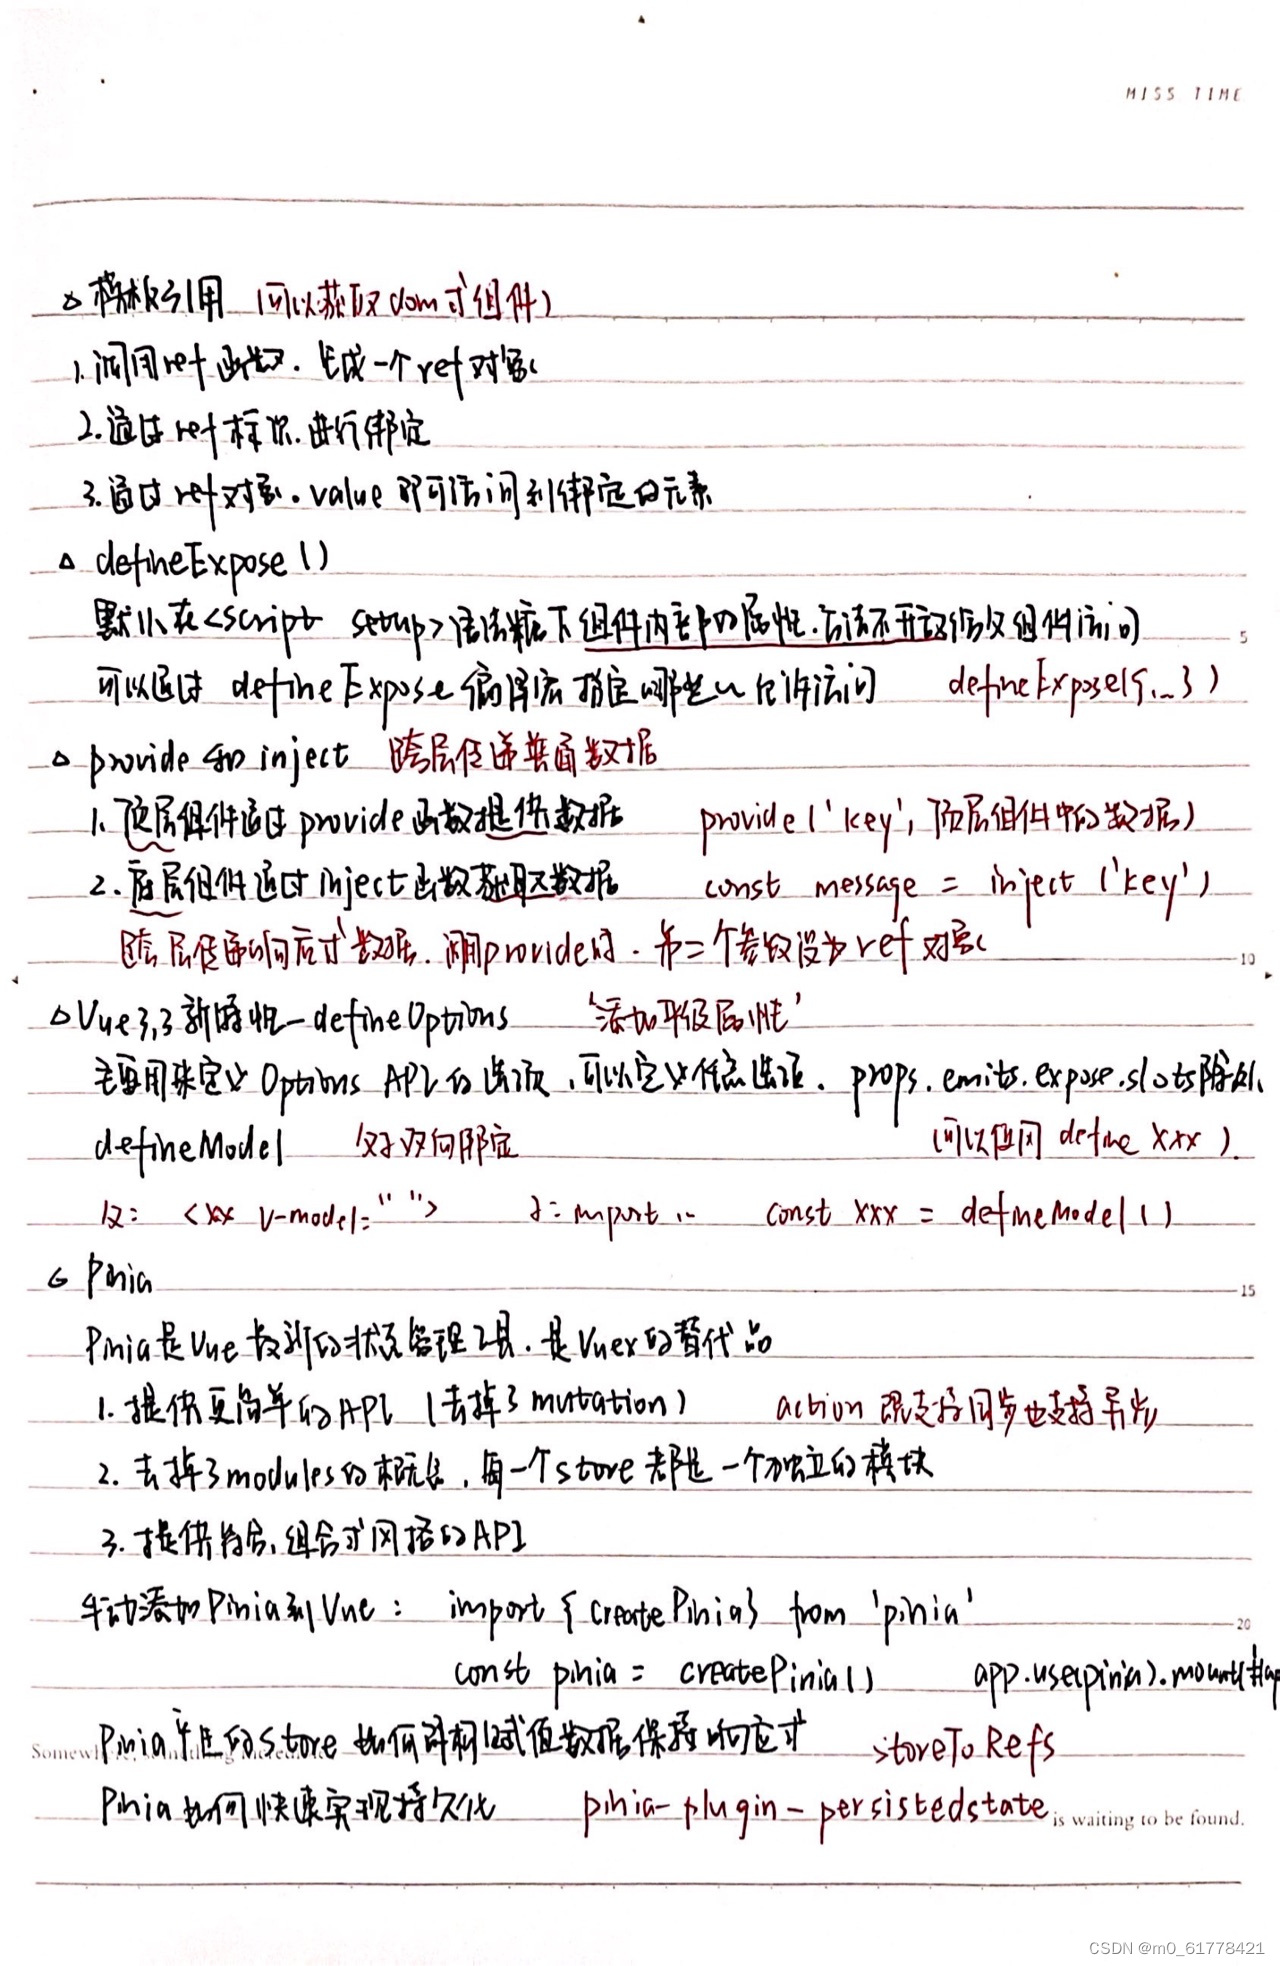 MISS TIME
△ 模板引用 (可以获取dom或组件)
1. 调用ref函数. 生成一个ref对象
2. 通过ref标识.进行绑定
3. 通过ref对象.value 即可访问到绑定的元素
△ defineExpose ()
默认在<script setup>语法糖下组件内部的属性.方法不开放给父组件访问
可以通过 defineExpose 编译宏 指定哪些 允许访问 defineExpose({...})
△ provide 和 inject 跨层传递普通数据
1. 顶层组件通过 provide 函数提供数据 provide ('key', 顶层组件中的数据)
2. 底层组件通过 inject 函数获取数据 const message = inject ('key')
跨层传递响应式数据. 调用provide时. 第二个参数设为ref对象
△ Vue3.3 新特性-defineOptions '添加平级属性'
主要用来定义 Options API 的选项,可以定义任意选项. props.emits.expose.slots除外
defineModel 父子双向绑定 (可以使用 define xxx).
父: <xx v-model=" "> 子: import .. const xxx = defineModel()
Pinia
Pinia是Vue最新的状态管理工具.是Vuex的替代品
1. 提供更简单的API (去掉了mutation) action 既支持同步也支持异步
2. 去掉了modules的概念,每一个store都是一个独立的模块
3. 提供符合,组合式风格的API
手动添加Pinia到Vue: import { createPinia} from 'pinia'
const pinia = createPinia() app.use(pinia).mount('#ap
Pinia 产生的store 如何解构赋值数据保持响应式 storeToRefs
Pinia如何快速实现持久化 pinia-plugin-persistedstate
is waiting to be found.
5
10
15
20
CSDN @m0_61778421